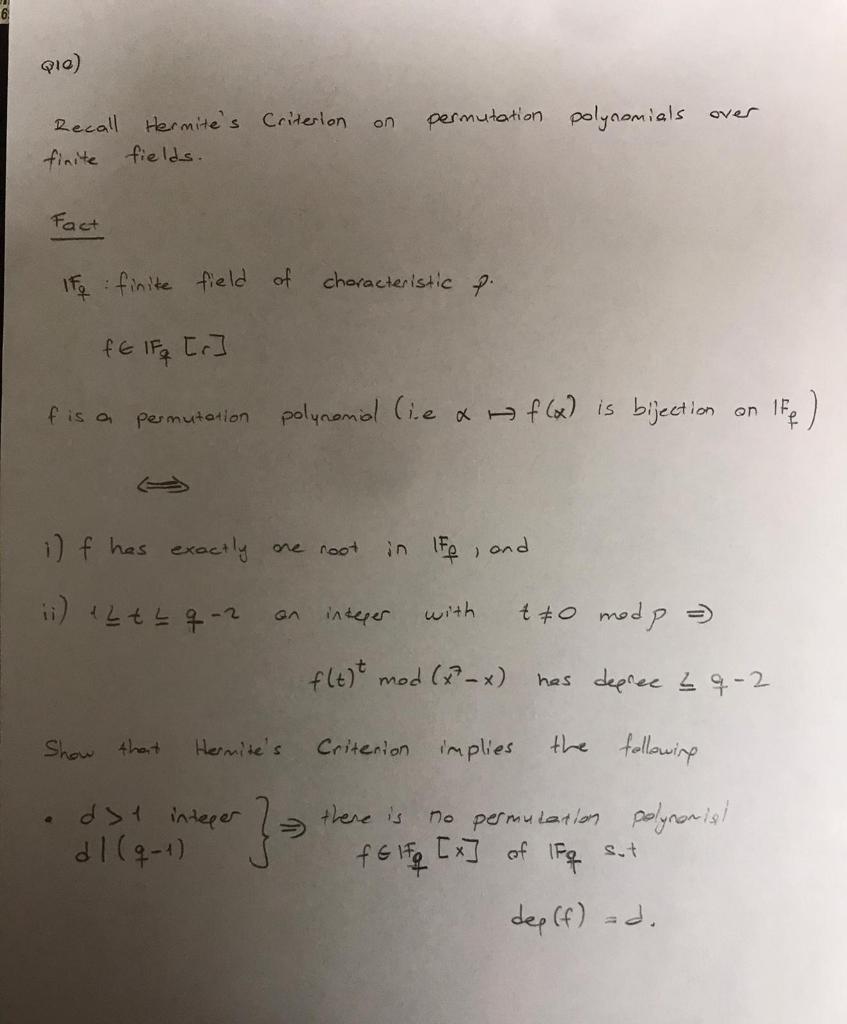 6
Q10)
Recall Hermite's Criterion on permutation polynomials over
finite fields.
Fact
𝔽q : finite field of characteristic p.
f ∈ 𝔽q [r]
f is a permutation polynomial (i.e α ↦ f(α) is bijection on 𝔽q)
⟺
i) f has exactly one root in 𝔽q, and
ii) 1 ≤ t ≤ q-2 an integer with t ≠ 0 mod p ⇒
f(t)^t mod (x^q - x) has degree ≤ q-2
Show that Hermite's Criterion implies the following
• d > 1 integer } ⇒ there is no permutation polynomial
d | (q-1) f ∈ 𝔽q [x] of 𝔽q s.t
deg(f) = d.